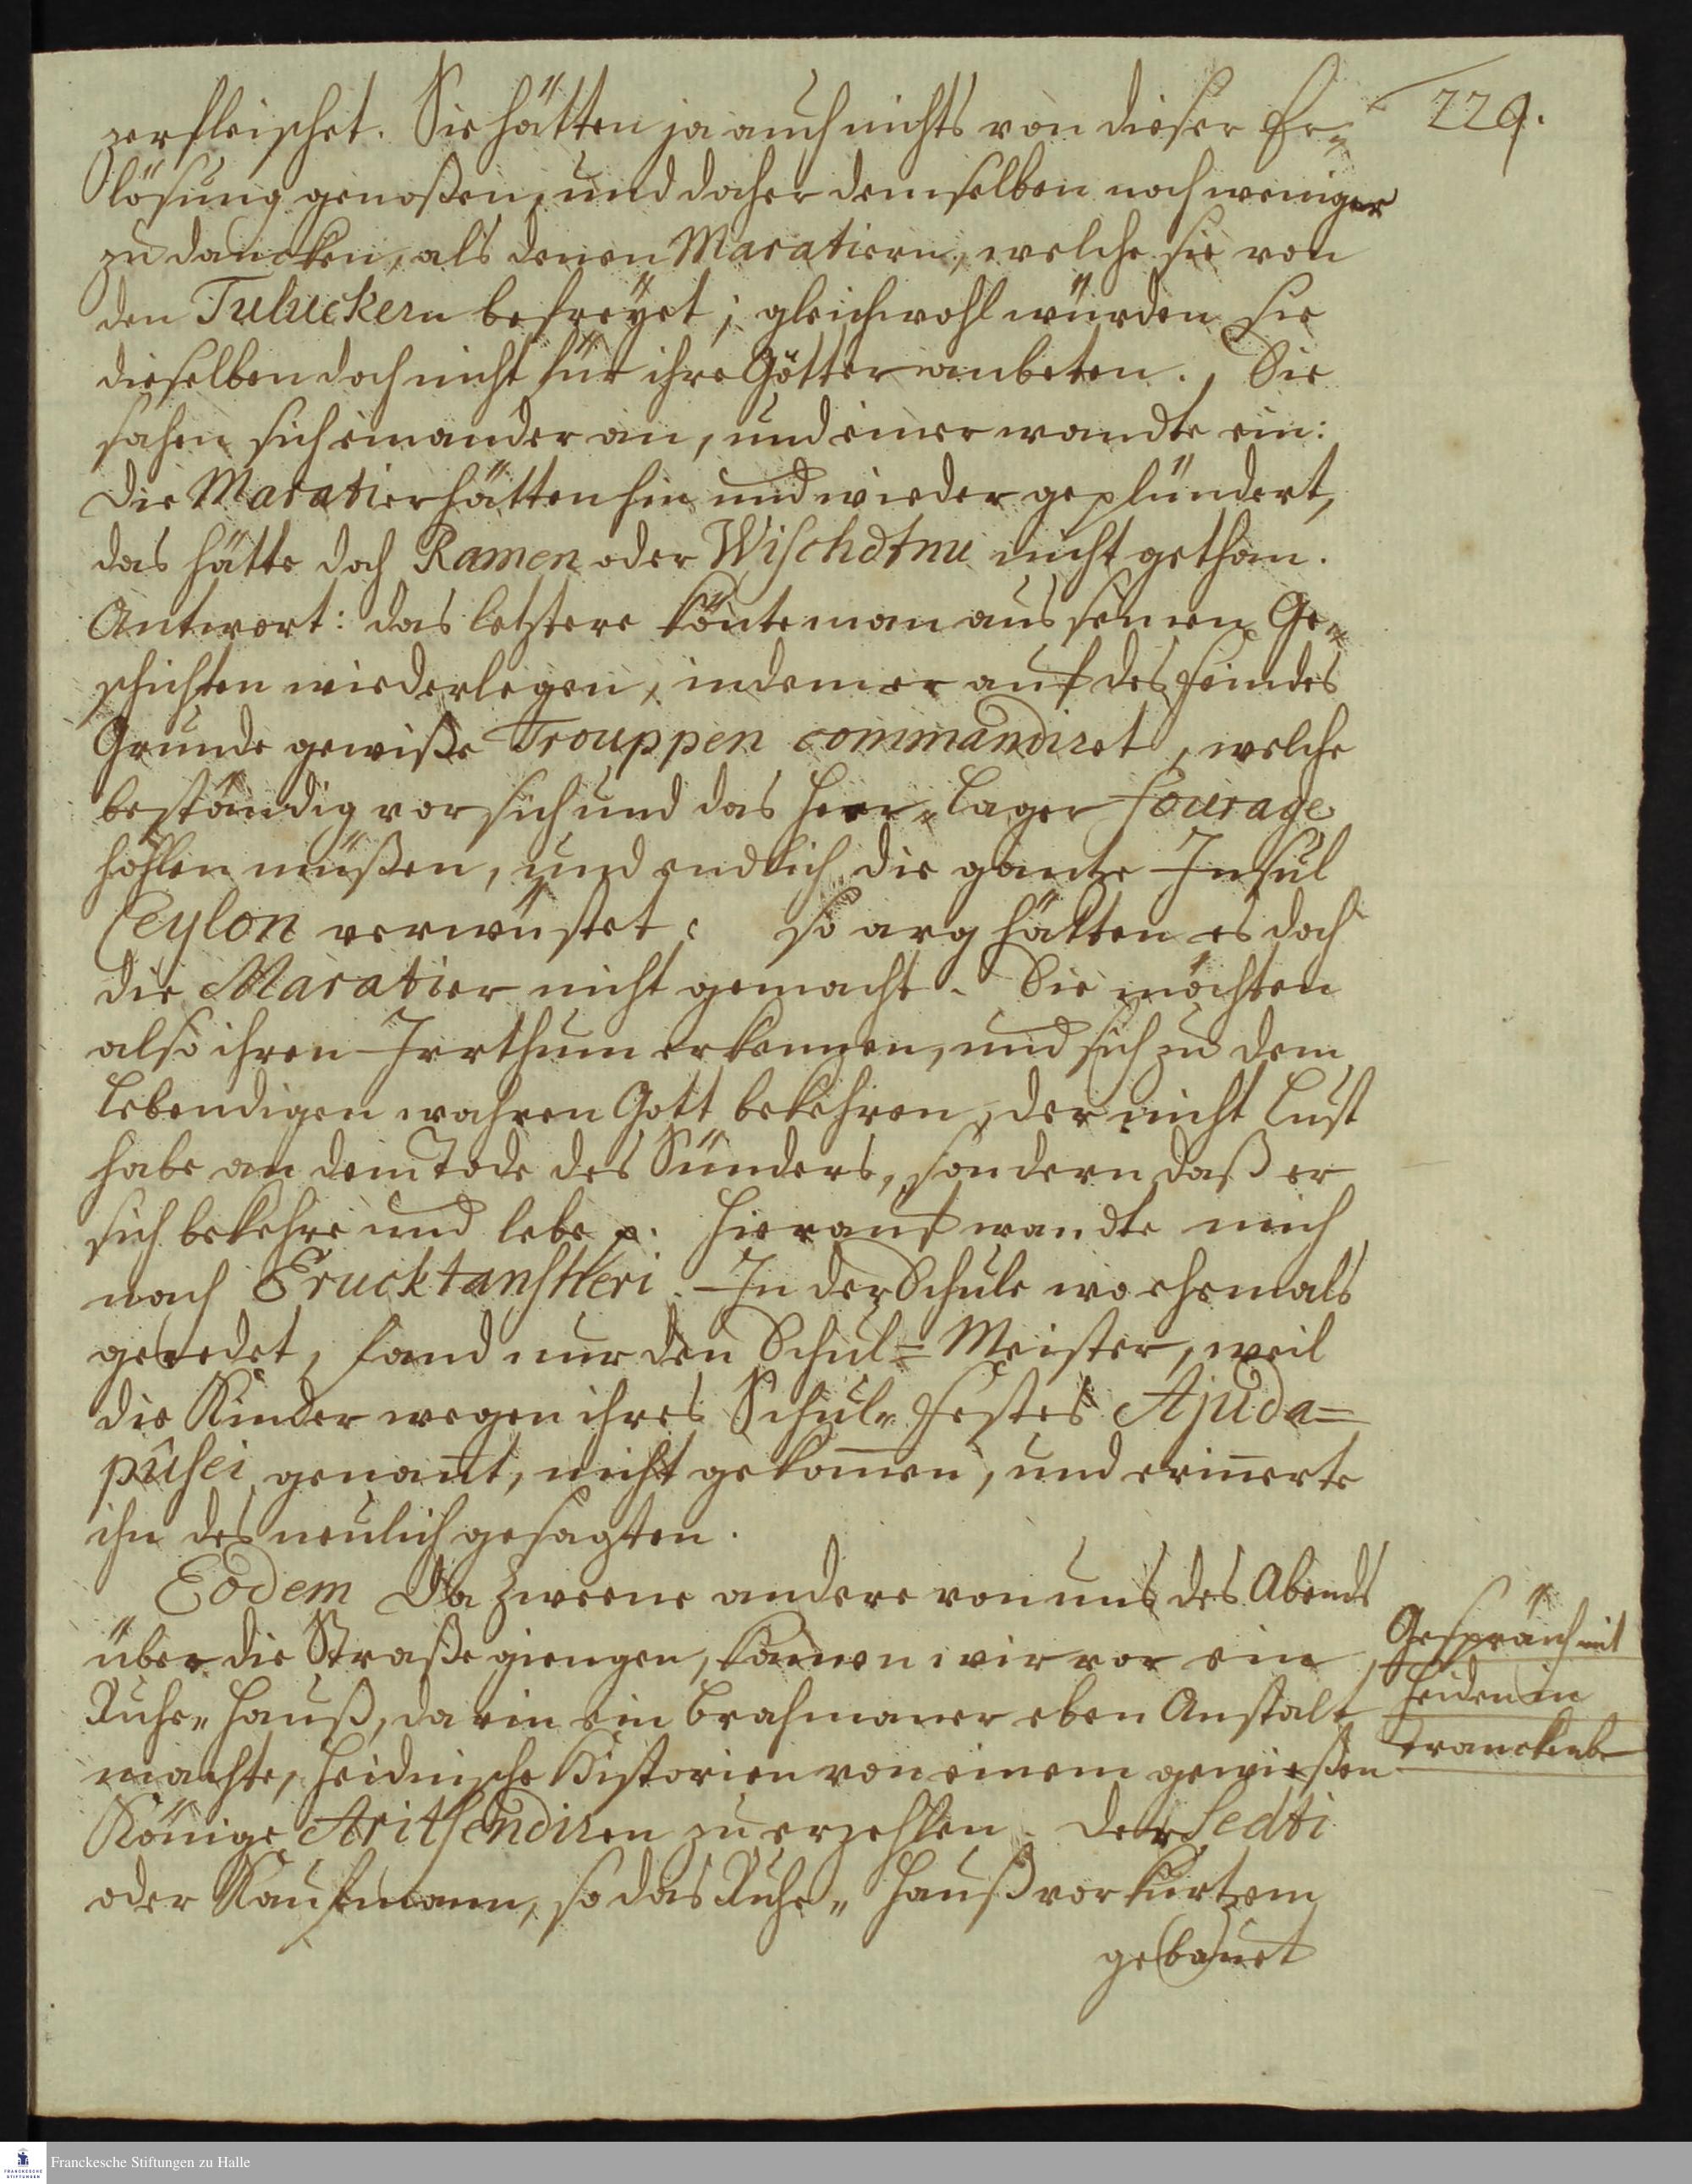 229.
zerfleischet. Sie hätten ja auch nichts von dieser Er=
lösung genoßen, und daher demselben noch weniger
zu dancken, als denen Maratiern, welche sie von
den Tuluckern befreyet; gleichwohl würden sie
dieselben doch nicht für ihre Götter anbeten. Sie
sahen sich einander an, und einer wandte ein:
die Maratier hätten hin und wieder geplündert,
das hätte doch Ramen oder Wischdtnu nicht gethan.
Antwort: das letztere könte man aus seinen Ge=
schichten wiederlegen, indem er auf des Feindes
Grunde gewiße Trouppen commandiret, welche
beständig vor sich und das Heer=Lager Fourage
hohlen müßen, und endlich die gantze Insul
Ceylon verwüstet: so arg hätten es doch
die Maratier nicht gemacht. Sie möchten
also ihren Irrthum erkennen, und sich zu dem
Lebendigen wahren Gott bekehren, der nicht Lust
habe an dem Tode des Sünders, sondern daß er
sich bekehre und lebe p. Hierauf wandte mich
nach Erucktanstseri. In der Schule wo ehemals
geredet, fand nur den Schul=Meister, weil
die Kinder wegen ihres Schul=Festes Ajuda=
pûsei genannt, nicht gekom̅en, und erin̅erte
ihn des neulich gesagten.
Eodem Da Zweene andere von uns des Abends
über die Straße giengen, kamen wir vor ein
Ruhe=Hauß, darin ein Brahmaner eben Anstalt
machte, heidnische Historien von einem gewißen
Könige Aritsendiren zu erzehlen. Der Sedti
oder Kaufmann, so das Ruhe=Hauß vor kurtzem
gebauet
Gespräch mit
Heiden in
Tranckenb.
Franckesche Stiftungen zu Halle
FRANCKESCHE
STIFTUNGEN